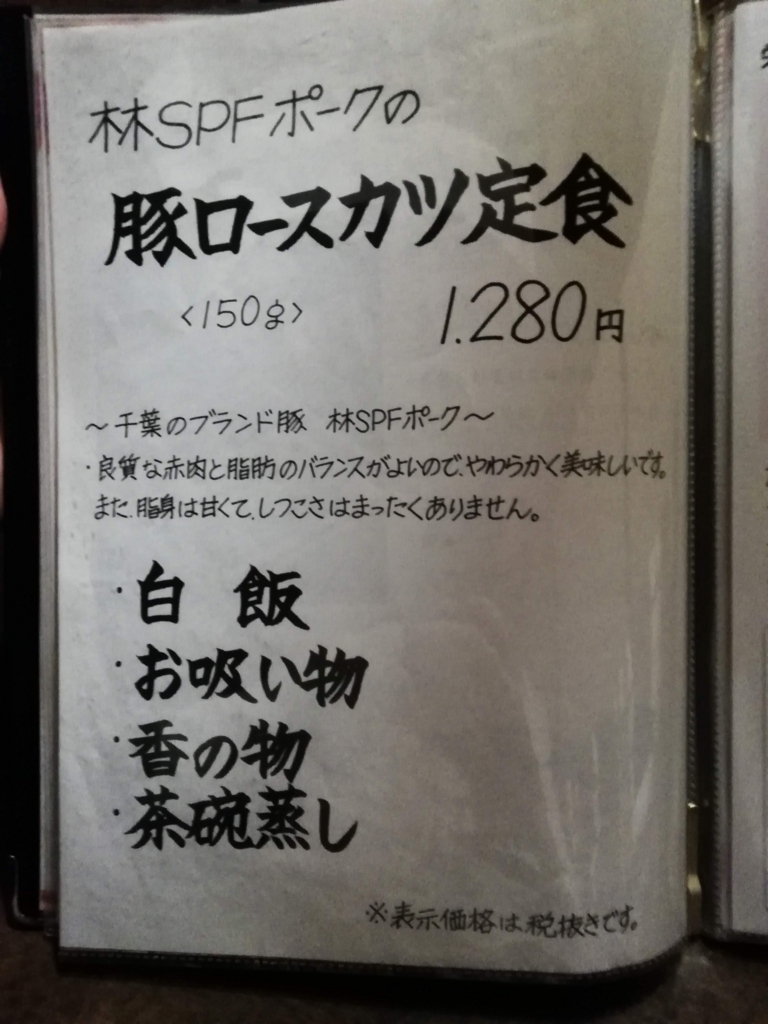 林SPFポークの
豚ロースカツ定食
<150g> 1.280円
～千葉のブランド豚 林SPFポーク～
・良質な赤肉と脂肪のバランスがよいので、やわらかく美味しいです。
また、脂身は甘くて、しつこさはまったくありません。
・白飯
・お吸い物
・香の物
・茶碗蒸し
※表示価格は税抜きです。